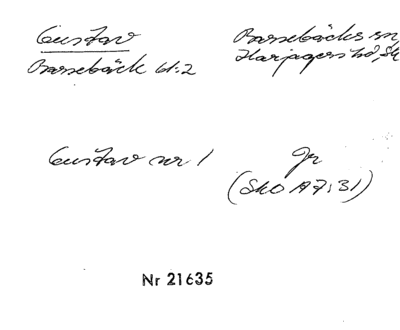 Gustav
Barsebäck 61:2
Barsebäcks sn,
Harjagers hd, Sk
Gustav nr 1
Gr
(SkO A 7:31)
Nr 21635